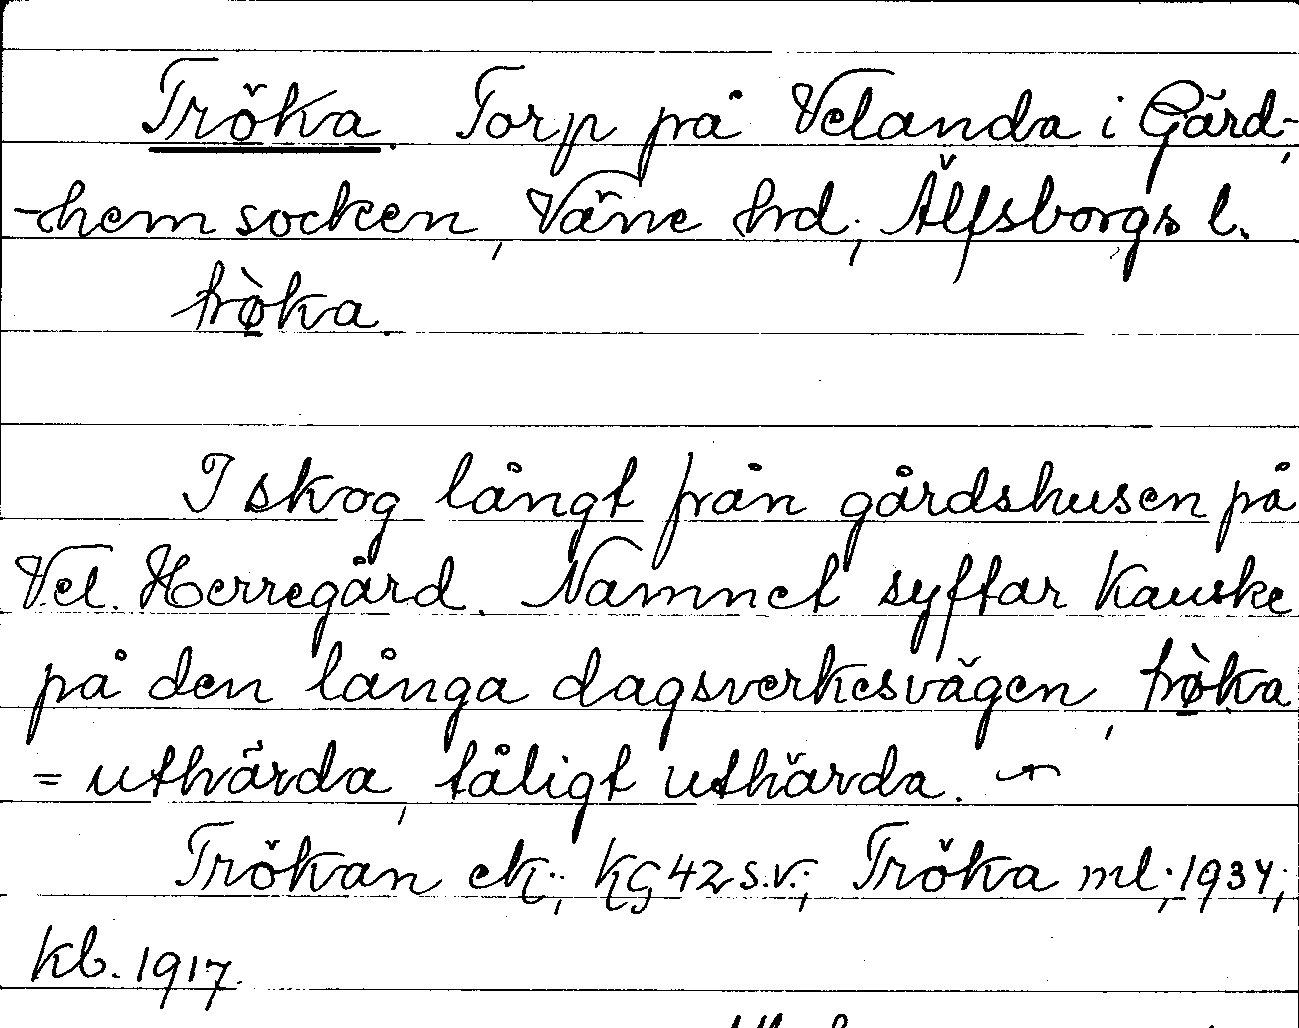 Tröka. Torp på Velanda i Gärd-
-hem socken, Väne hrd; Älfsborgs l.
trø̀ka.
I skog långt från gårdshusen på
Vel. Herregård. Namnet syftar kanske
på den långa dagsverkesvägen, trø̀ka
= uthärda, tåligt uthärda.
Trökan ek.; KG 42 s.v.; Tröka ml; 1934;
kb. 1917.